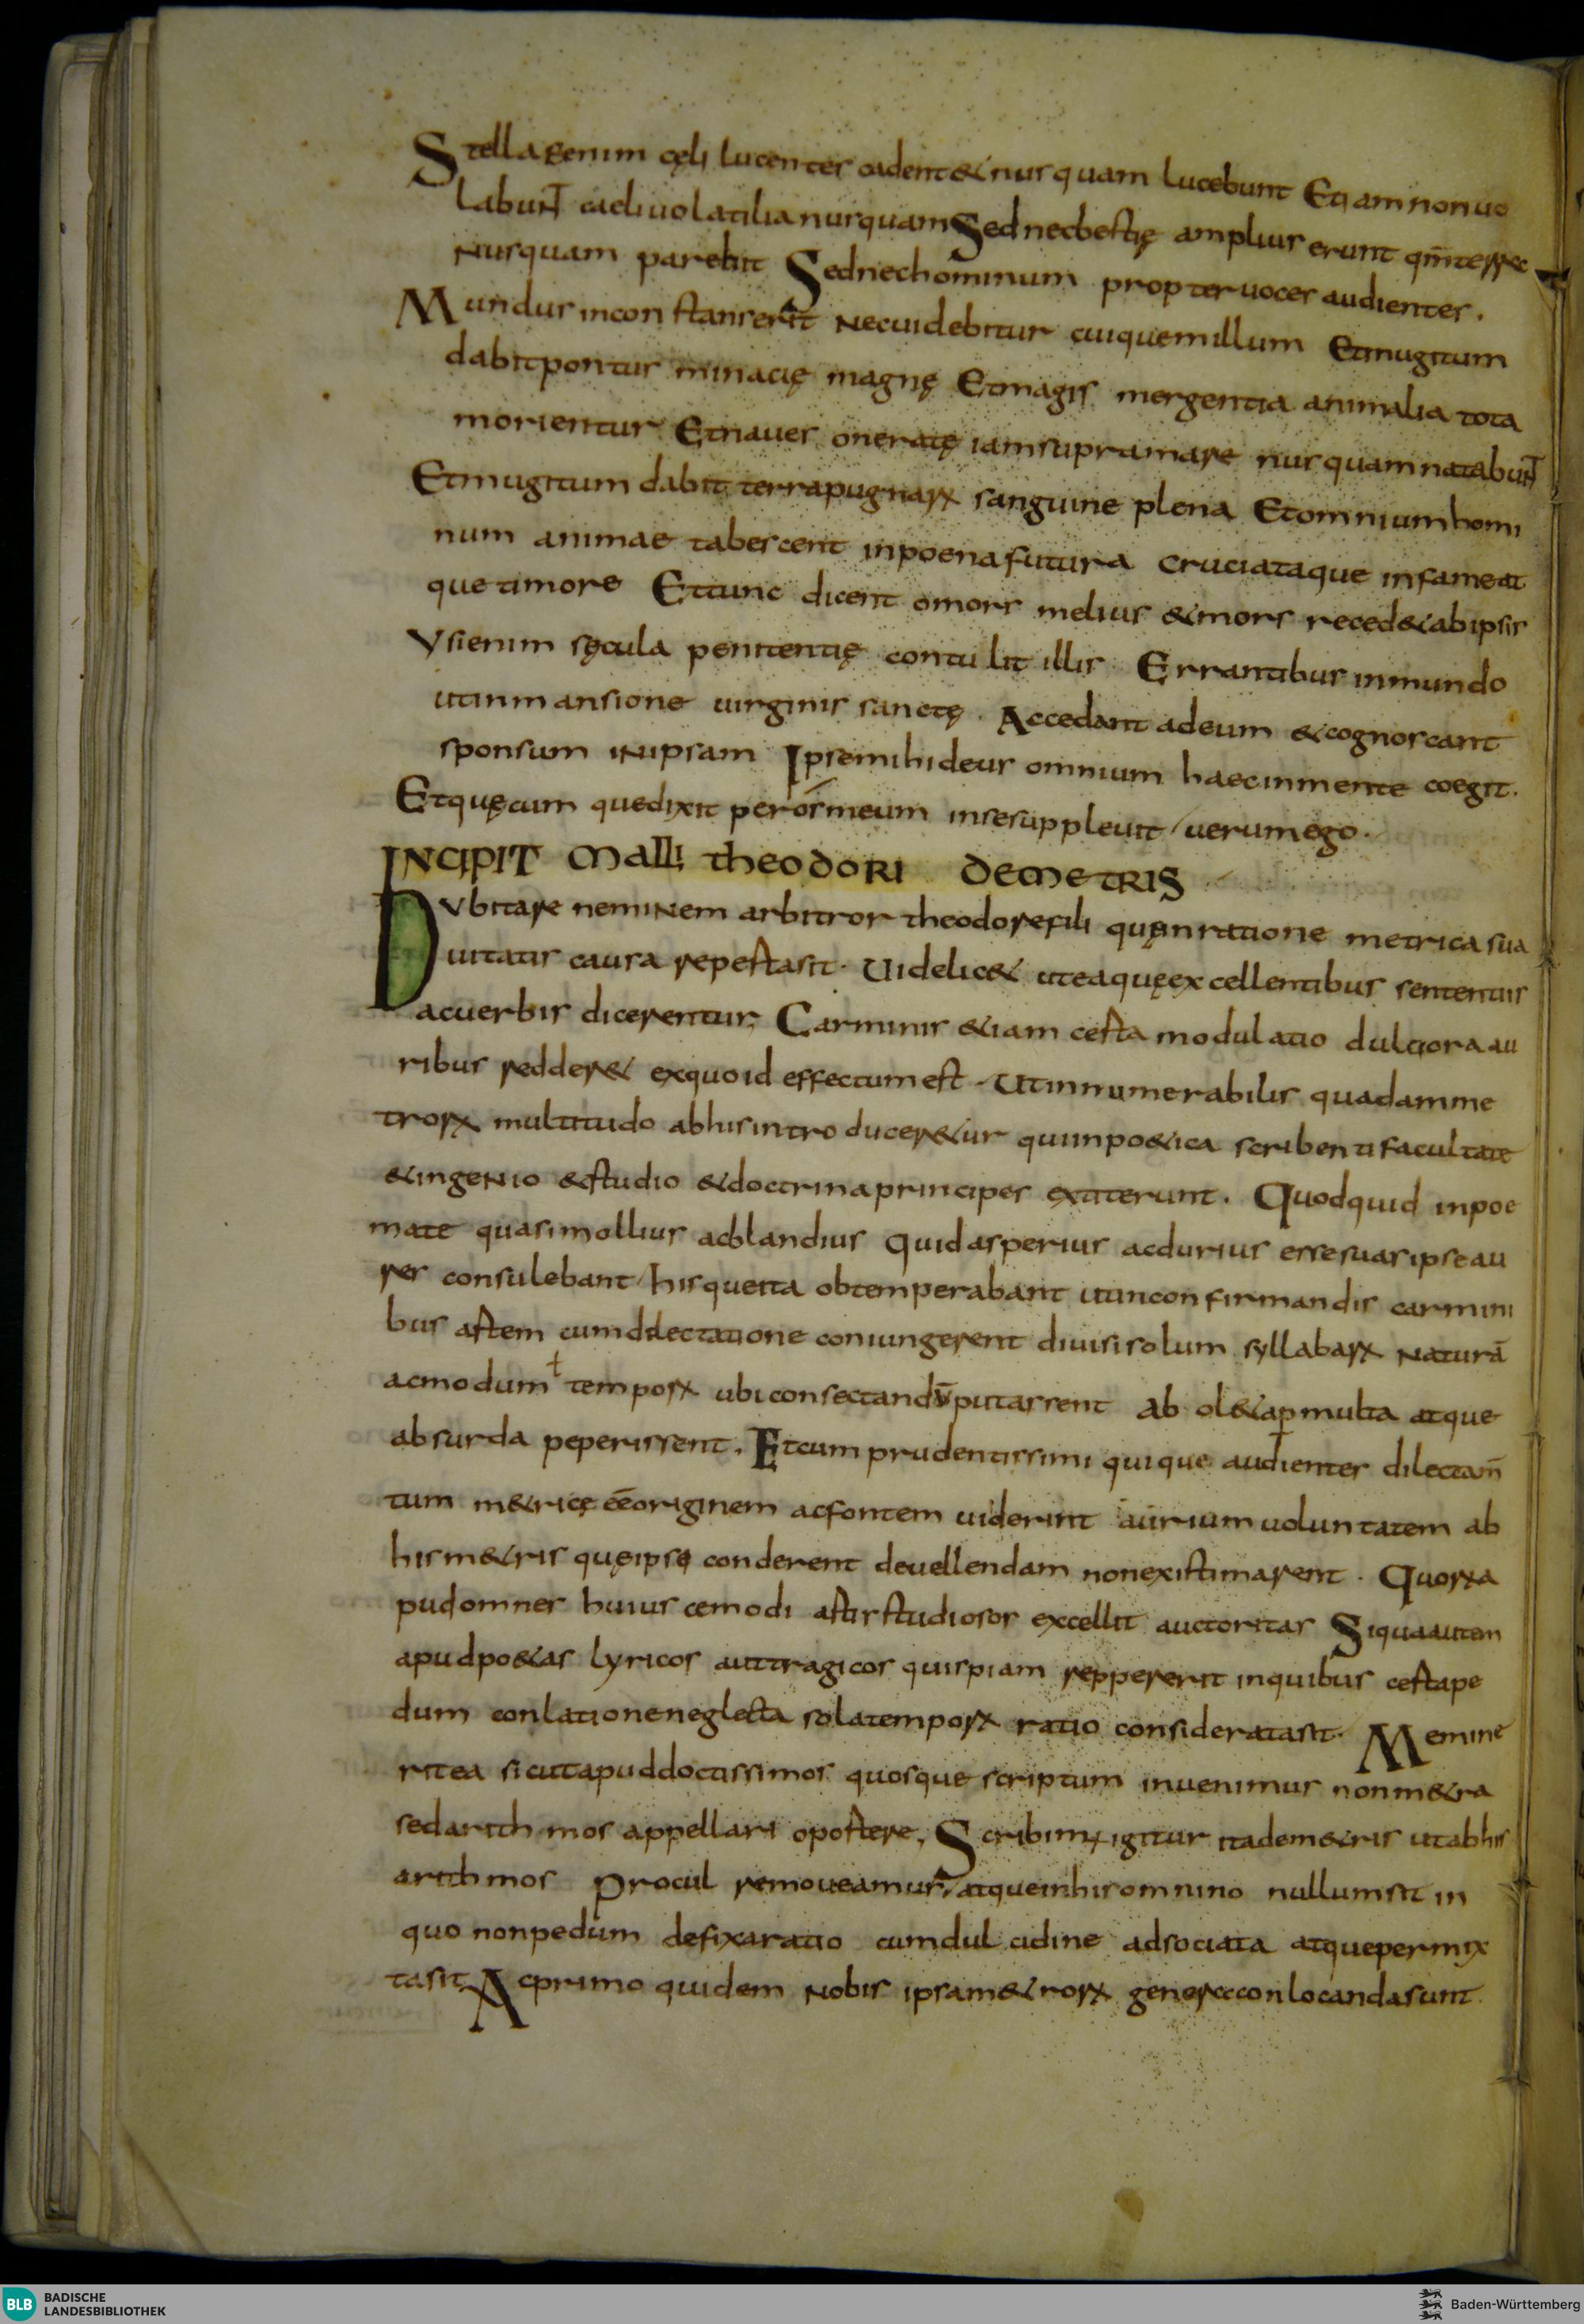 Stellae enim cęli lucentes cadent & nusquam lucebunt Etiam non uo
labunt caeli uolatilia nusquam Sed nec bestię amplius erunt
nusquam parebit Sed nec hominum propter uoces audientes.
Mundus inconstans erit nec uidebitur cuiquem illum Et mugitum
dabit pontus minacię magnę Et magis mergentia animalia tota
morientur Et naues oneratę iam supra mare nusquam natabunt
Et mugitum dabit terra pugnarꝝ sanguine plena Et omnium homi
num animae tabescent in poena futura cruciataque in fame at
que timore Et tunc dicent o mors melius & mors reced& ab ipsis
Vsi enim sęcula penitentię contulit illis Errantibus in mundo
ut in mansione uirginis sanctę. Accedant ad eum & cognoscant
sponsum in ipsam Ipse mihi deus omnium haec in mente coegit.
Et quęcumque dixit per os meum in se suppleuit uerum ego.
INCIPIT Malli theodori de metris
Dvbitare neminem arbitror theodore fili quęn ratione metrica sua
uitatis causa repesta sit. Uidelic& ut ea quę excellentibus sententiis
ac uerbis dicerentur, Carminis &iam cesta modulatio dulciora au
ribus redder& ex quo id effectum est. Ut innumerabilis quadam me
trorꝝ multitudo ab his introducer&ur qui in po&ica scribenti facultate
& ingenio & studio & doctrina principes extiterunt. Quod quid in poe
mate quasi mollius ac blandius quid asperius ac durius esse suas ipse au
res consulebant hisque ita obtemperabant ut in confirmandis carmini
bus astem cum delectatione coniungerent diuisi solum syllabarꝝ naturā
ac modum ł temporꝝ ubi consectandū putassent ab ol&ap multa atque
absurda peperissent. Et cum prudentissimi quique audientes dilectan̄
tum m&ricę eē originem ac fontem uiderint aurium voluntatem ab
his m&ris quę ipsę conderent deuellendam non existimarent. Quorꝝ a
pud omnes huiuscemodi astis studiosos excellit auctoritas Si qua autem
apud po&as lyricos aut tragicos quispiam reppererit in quibus cesta pe
dum conlatione neglecta sola temporꝝ ratio considerata sit. Memine
rit ea sicut apud doctissimos quosque scriptum inuenimus non m&ra
sed arithmos appellari opostere, Scribimꝰ igitur ita de m&ris ut ab his
arithmos procul remoueamus, atque in his omnino nullum sit in
quo non pedum defixa ratio cum dulcidine adsociata atque permix
ta sit Ac primo quidem nobis ipsa m&rorꝝ genera conlocanda sunt
BLB BADISCHE
LANDESBIBLIOTHEK
Baden-Württemberg